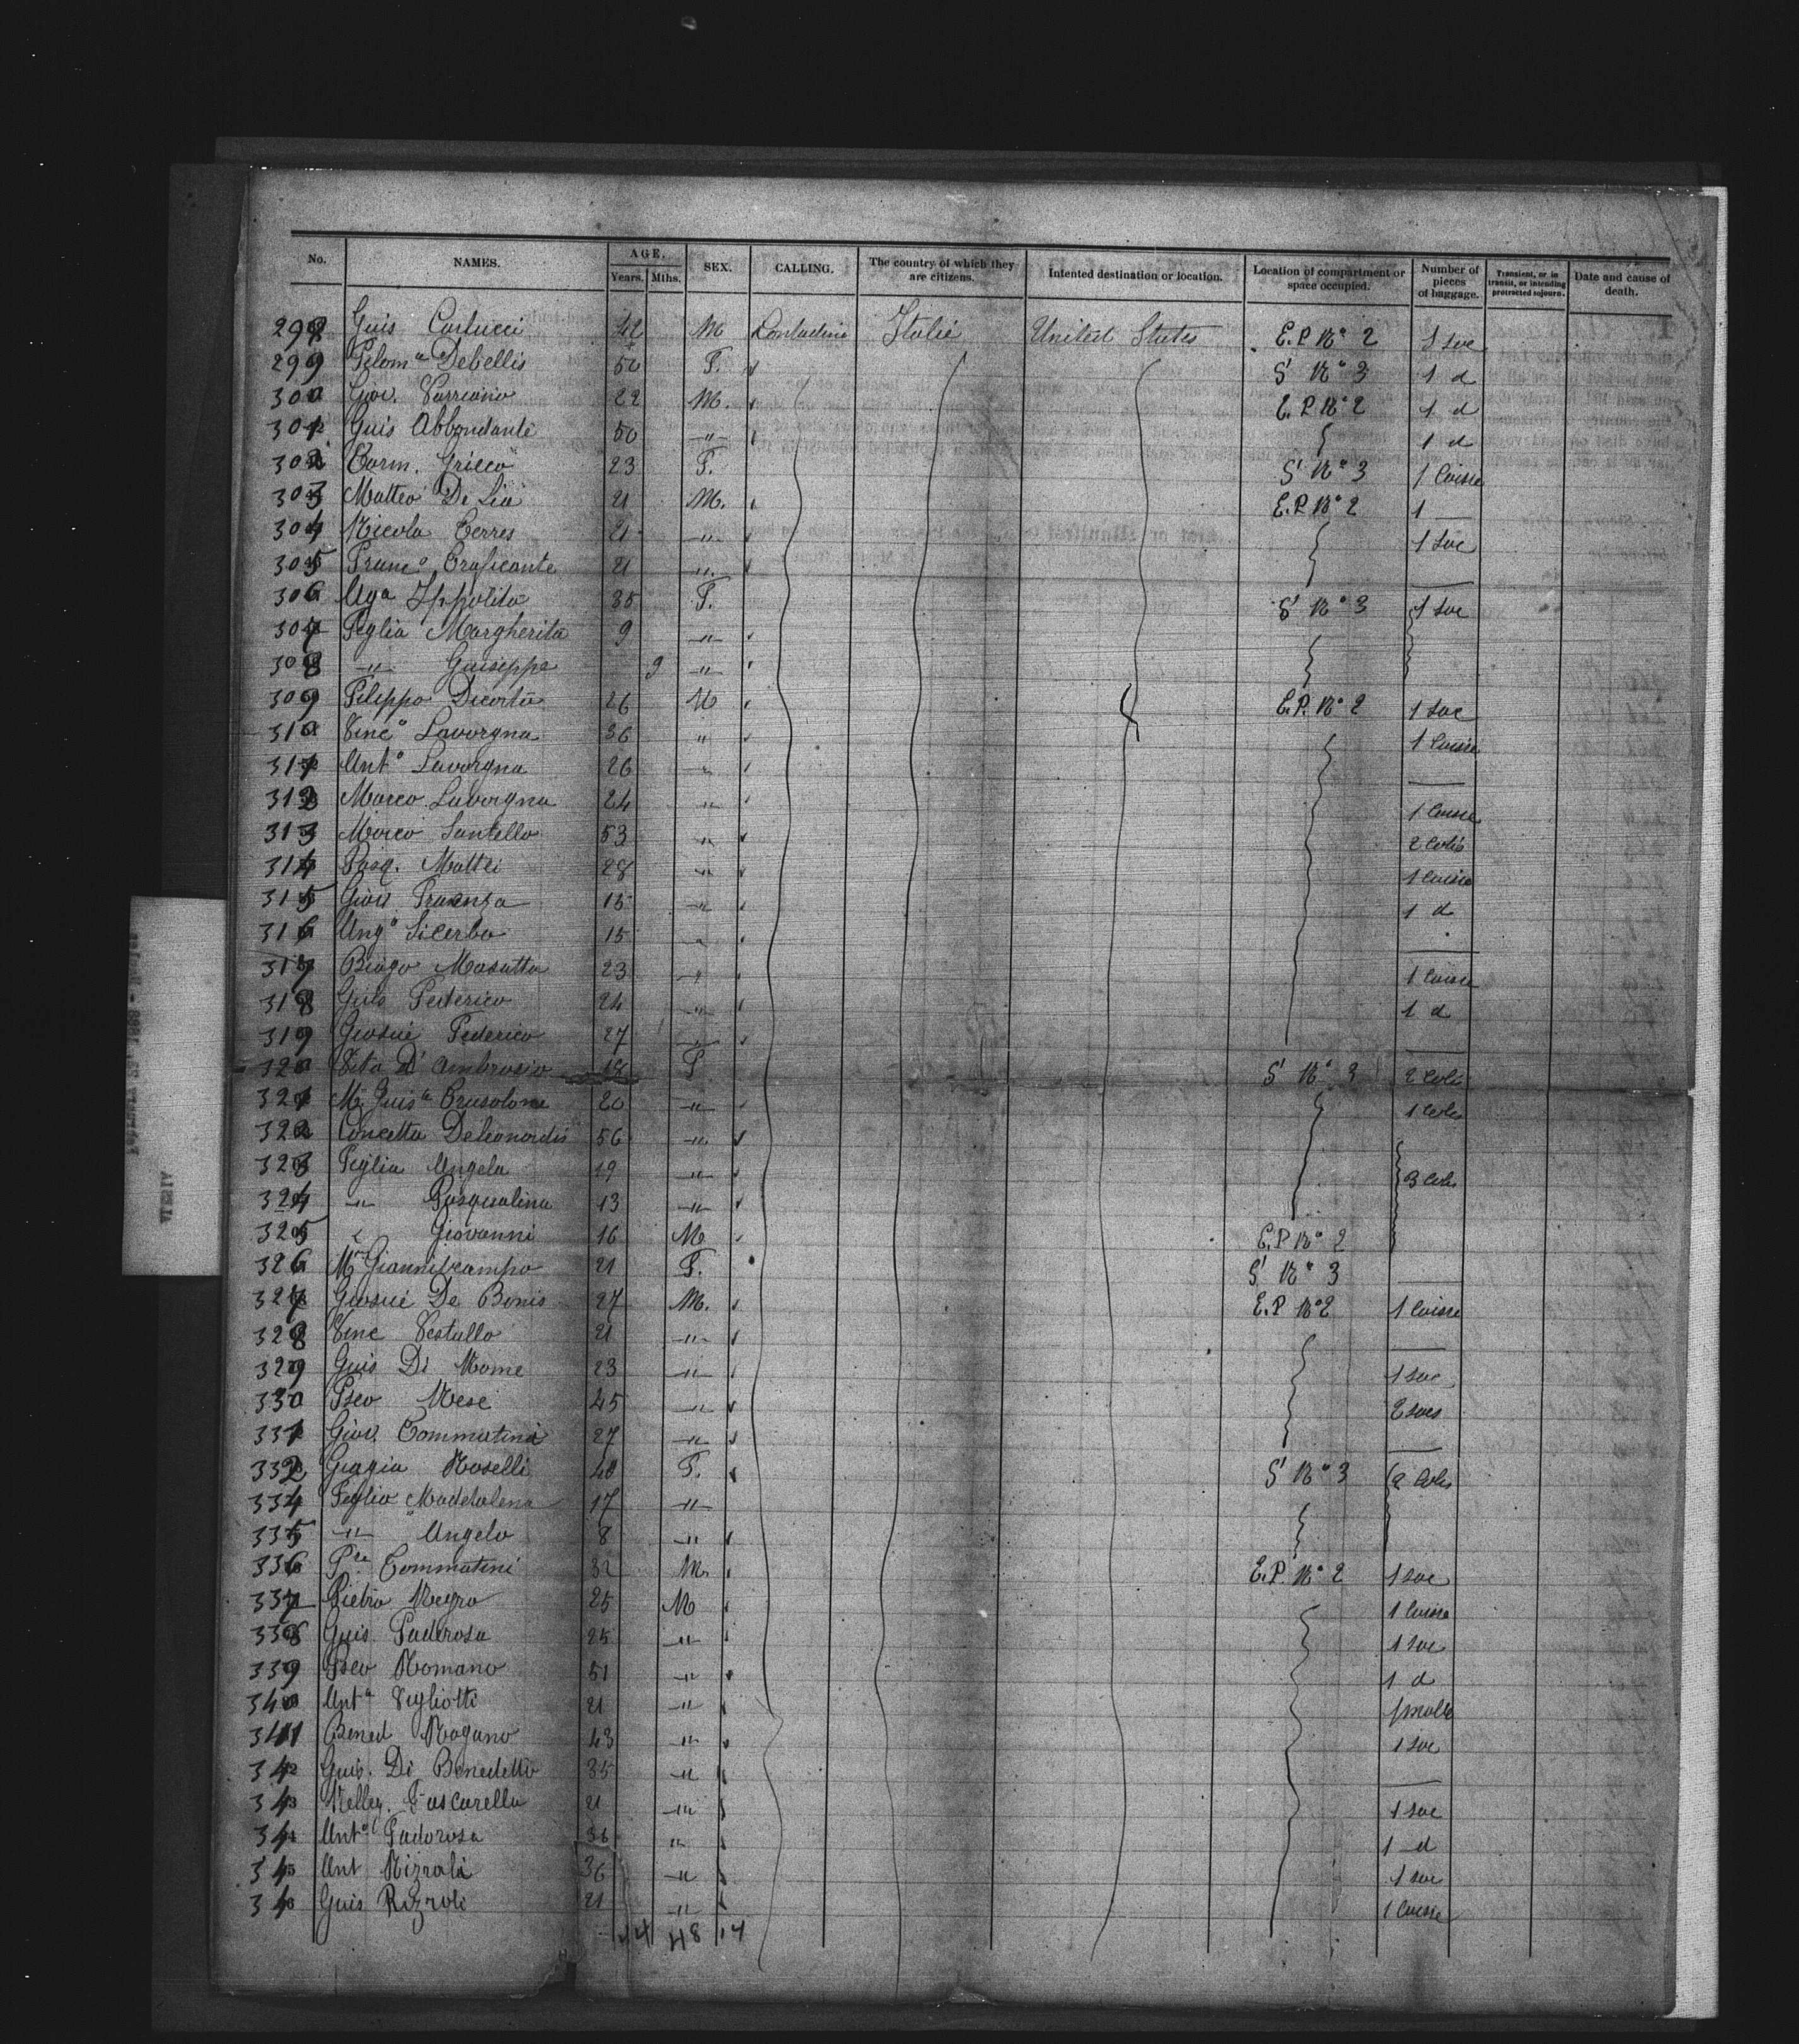 No. NAMES. AGE. Years. Mths. SEX. CALLING. The country of which they are citizens. Intented destination or location. Location of compartment or space occupied. Number of pieces of baggage. Transient, or in transit, or intending protracted sojourn. Date and cause of death.
298 Guis Carlucci 42 M Contadini Italie United States E.P. No 2 1 sac
299 Filoma Debellis 50 F. S' No 3 1 d
300 Giov. Varriano 22 M. E.P. No 2 1 d
301 Guis Abbondante 50 " 1 d
302 Carm. Grieco 23 F. S' No 3 1 Caisse
303 Matteo De Lia 21 M. E.P. No 2 1 —
304 Nicola Cerres 21 " 1 sac
305 Franco Traficante 21 " —
306 Aga Ippolita 35 F. S' No 3 1 sac
307 Figlia Margherita 9 "
308 " Guiseppa 9 "
309 Filippo Dicorto 26 M E.P. No 2 1 sac
310 Vinco Lavorgna 36 " 1 Caisse
311 Anto Lavorgna 26 " —
312 Marco Lavorgna 24 " 1 Caisse
313 Marco Santello 53 " 2 Colis
314 Pasq. Mattei 28 " 1 Caisse
315 Giov. 15 " 1 d
316 Ango Licerbo 15 " —
317 Biago Masatta 23 " 1 Caisse
318 Guis Federico 24 " 1 d
319 Giosué Federico 27 " —
320 Vita D'Ambrosio 18 F S' No 3 2 Coli
321 Ma Guisa Crusolone 20 " 1 Colis
322 Concetta Deleonardis 56 "
323 Figlia Angela 19 " 3 Colis
324 " Pasqualina 13 "
325 " Giovanni 16 M E.P. No 2
326 Ma Giannibcampo 21 F. S' No 3 —
327 Giosué De Bonis 27 M. E.P. No 2 1 Caisse
328 Vinc Vestullo 21 " —
329 Guis Di Mome 23 " 1 sac
330 Fsco Nese 45 " 2 sacs
331 Giov. Tommatini 27 " —
332 Grazia Roselli 40 F. S' No 3 2 Colis
334 Figlia Maddalena 17 "
335 " Angelo 8 "
336 Pre Tommatini 32 M. E.P. No 2 1 sac
337 Pietro Negro 25 M 1 Caisse
338 Guis Paderosa 25 " 1 sac
339 Fsco Romano 51 " 1 d
340 Anta Vigliotti 21 " 1 malle
341 Bened Rogano 43 " 1 sac
342 Guis. Di Benedetto 35 " —
343 Toscarella 21 " 1 sac
34 Anto Padorosa 36 " 1 d
345 Ant Rizzoli 36 " 1 sac
34 Guis Rizzoli 21 " 1 Caisse
44 48 14